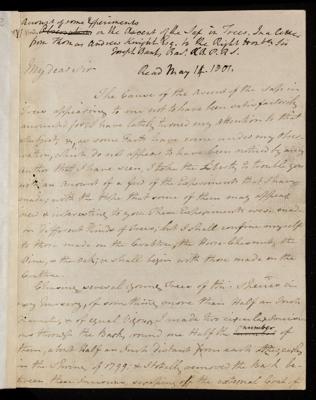 Account of some Experiments
on the Ascent of the Sap in Trees. In a Letter
from Thomas Andrew Knight Esq. to the Right Honble Sir
Joseph Banks Bart. K.B. P.R.S.
Read May 14. 1801.
My dear Sir
The Cause of the Ascent of the Sap in
Trees appearing to me not to have been satisfactorily
accounted for I have lately turned my attention to that
Subject; & as some Facts have come under my obser-
vation, which do not appear to have been noticed by any
author that I have seen, I take the Liberty to trouble you
with an Account of a few of the Experiments that I have
made, with the Hope that some of them may appear
new & interesting to you. These Experiments were made
on different kinds of Trees, but I shall confine myself
to those made on the Crabtree, the Horse Chesnut, the
Vine, & the Oak; & shall begin with those made on the
Crabtree.
Chusing several young Trees of this Species in
my Nursery, of something more than Half an Inch
Diameter, & of equal Vigour, I made two circular Incisi-
ons through the Bark, round one Half the number of
them, about Half an Inch distant from each other, early
in the Spring of 1799, & totally removed the Bark be-
tween these Incisions, scraping off the external Coat of